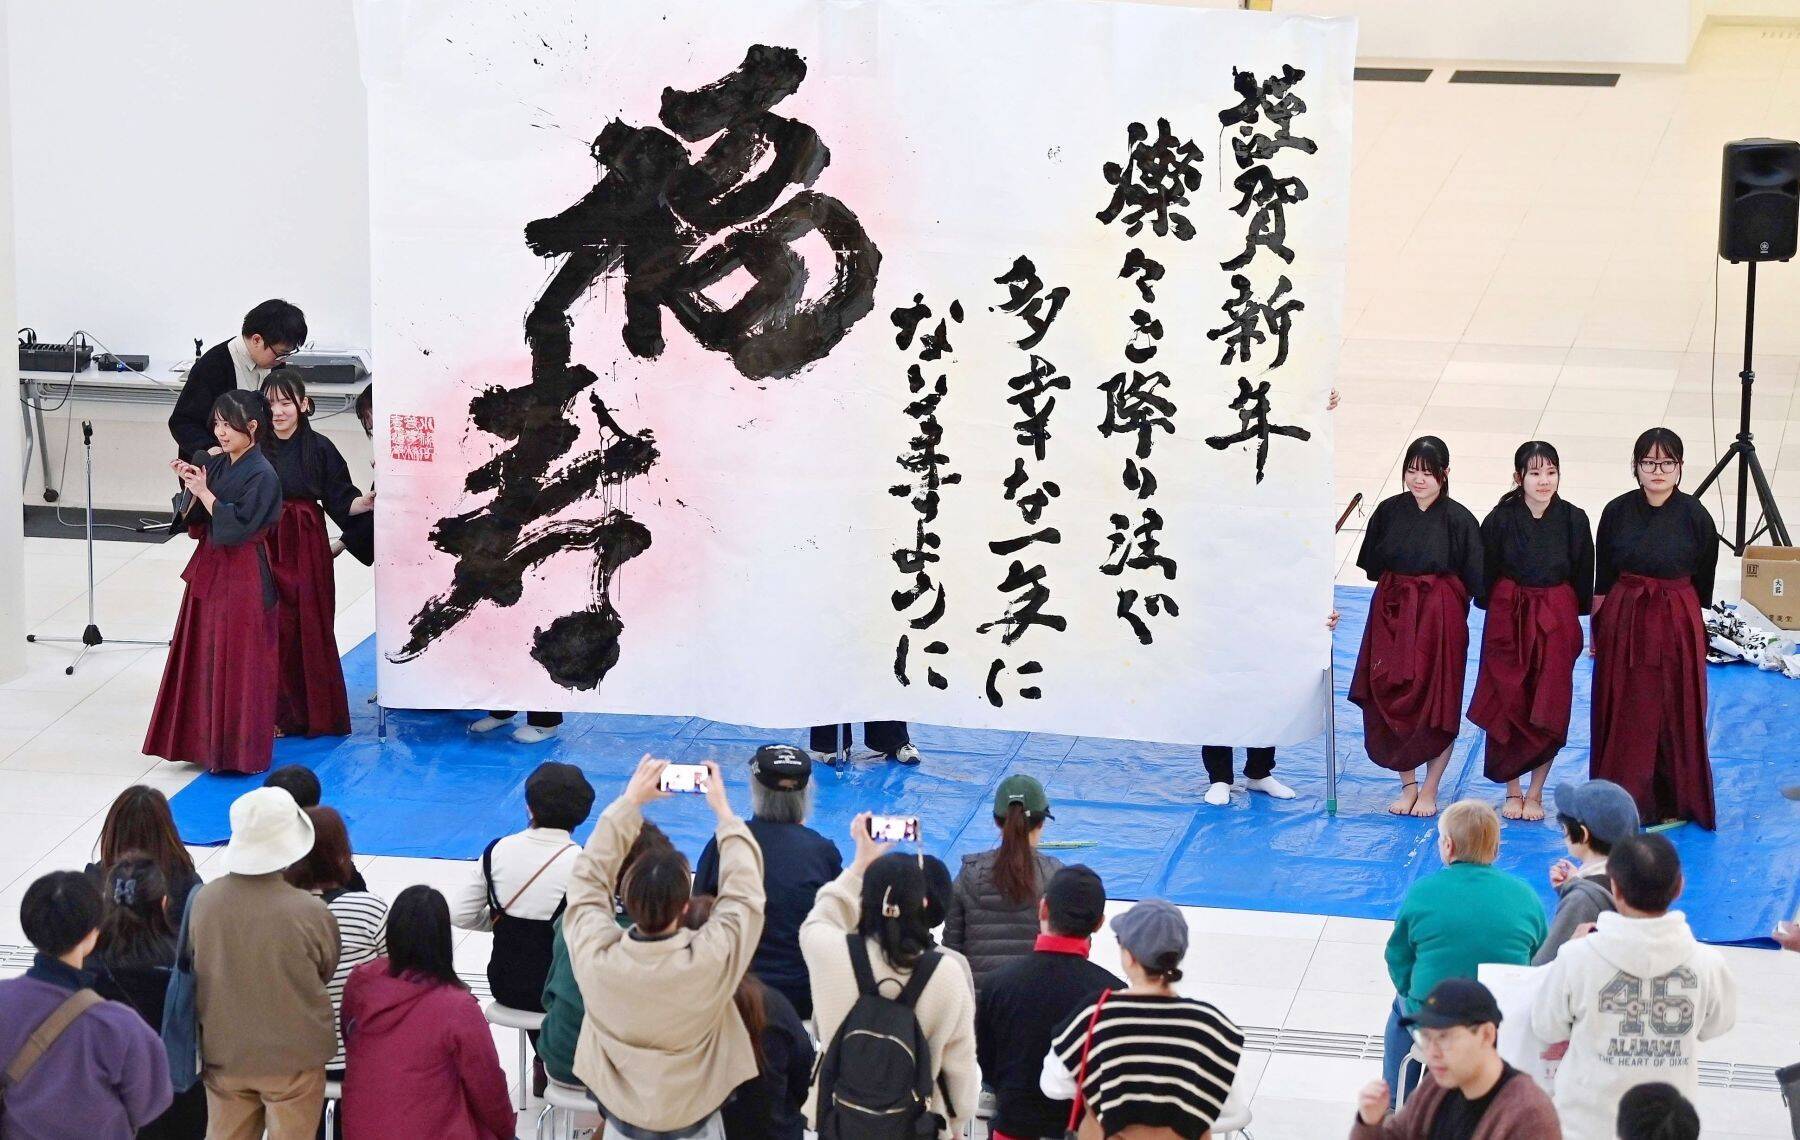 謹賀新年
燦々と降り注ぐ
多幸な一年に
なりますように
福寿
46
ALABAMA
THE HEART OF DIXIE